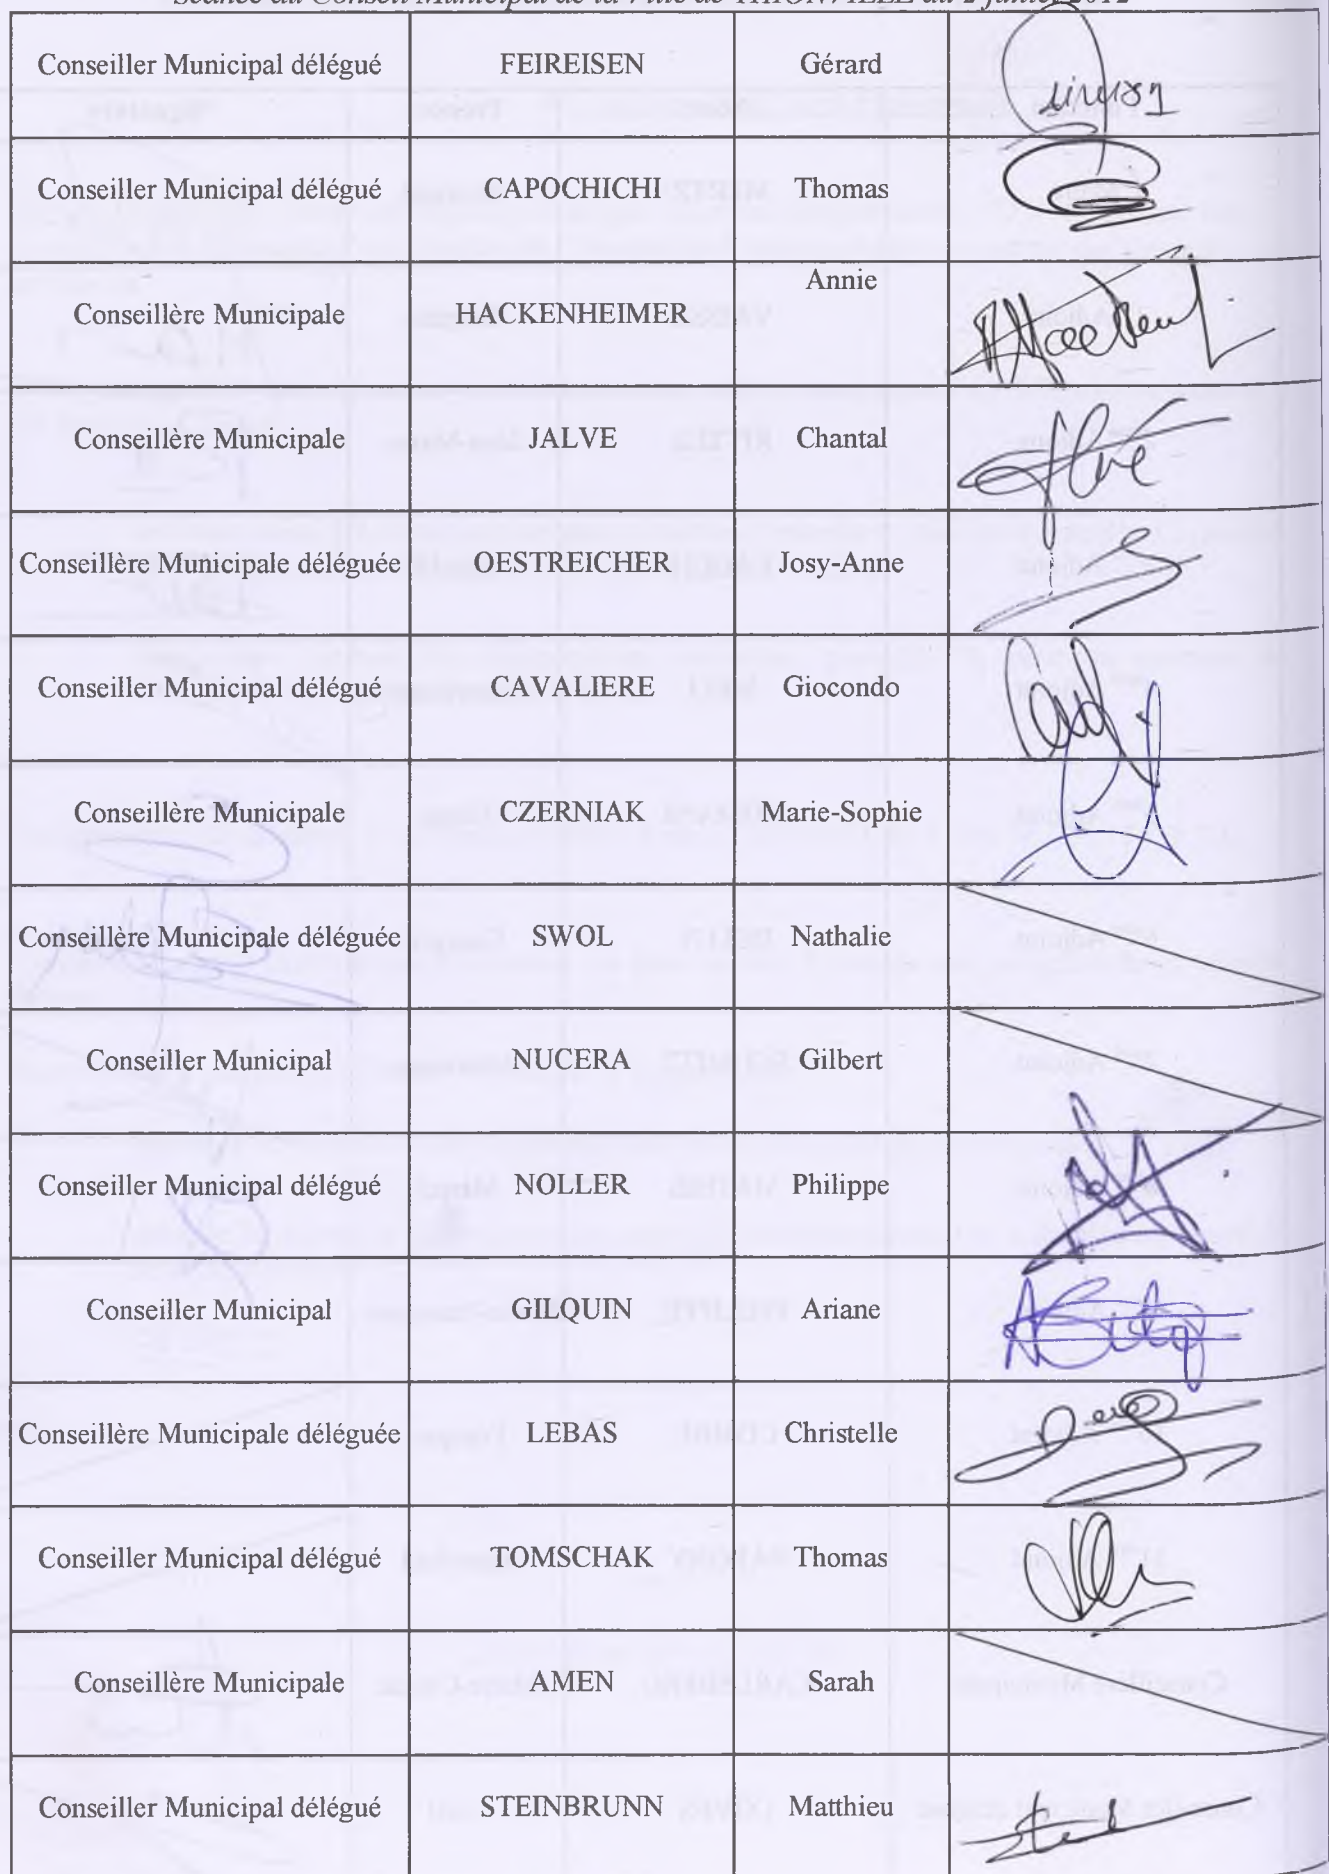 Séance du Conseil Municipal de la Ville de THIONVILLE du 2 juillet 2012
Conseiller Municipal délégué FEIREISEN Gérard
Conseiller Municipal délégué CAPOCHICHI Thomas
Conseillère Municipale HACKENHEIMER Annie
Conseillère Municipale JALVE Chantal
Conseillère Municipale déléguée OESTREICHER Josy-Anne
Conseiller Municipal délégué CAVALIERE Giocondo
Conseillère Municipale CZERNIAK Marie-Sophie
Conseillère Municipale déléguée SWOL Nathalie
Conseiller Municipal NUCERA Gilbert
Conseiller Municipal délégué NOLLER Philippe
Conseiller Municipal GILQUIN Ariane
Conseillère Municipale déléguée LEBAS Christelle
Conseiller Municipal délégué TOMSCHAK Thomas
Conseillère Municipale AMEN Sarah
Conseiller Municipal délégué STEINBRUNN Matthieu